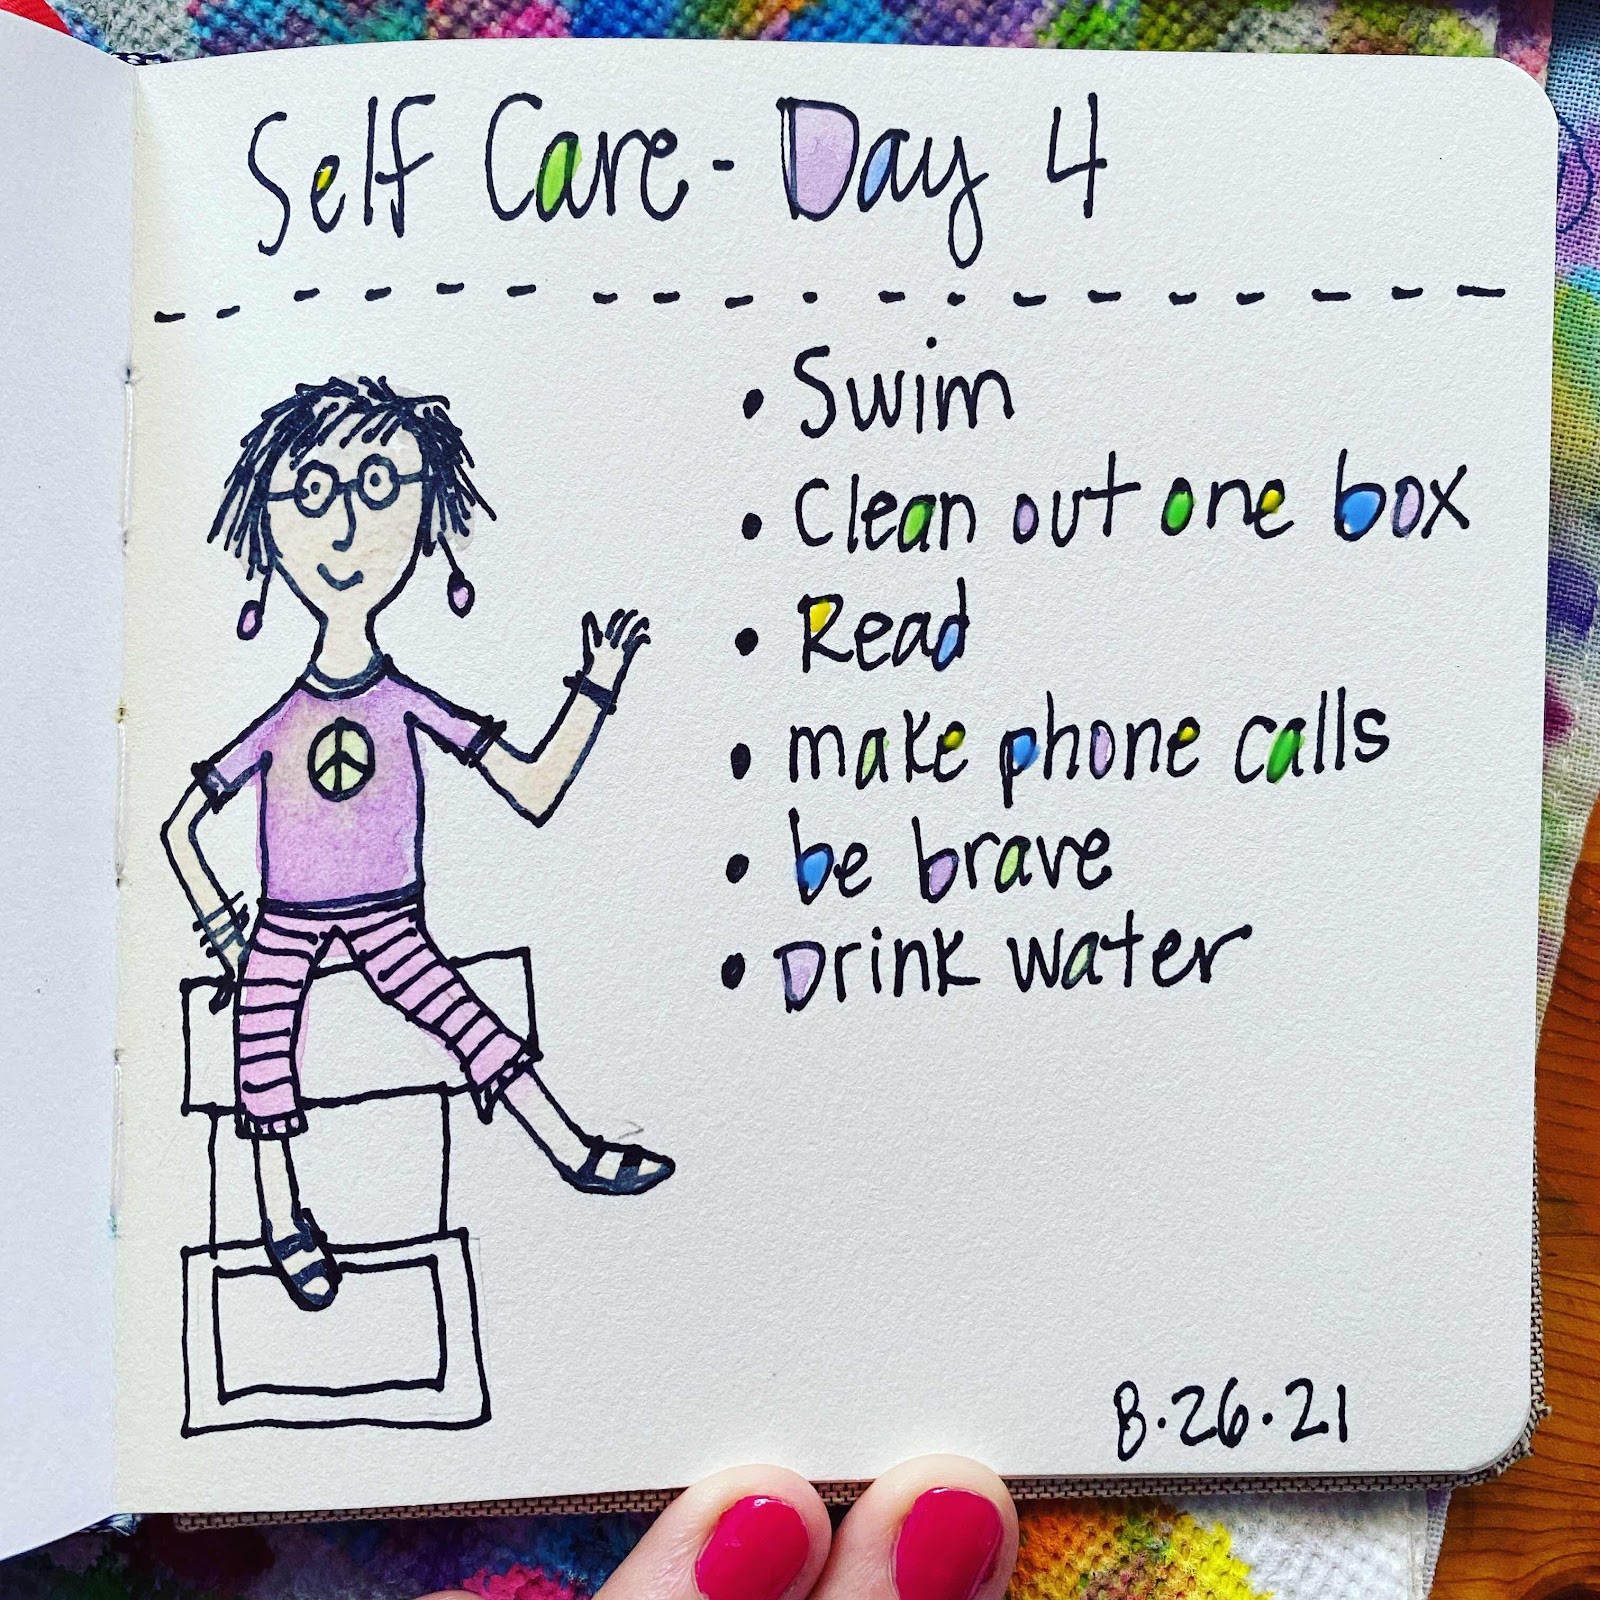 Self Care - Day 4
• Swim
• Clean out one box
• Read
• make phone calls
• be brave
• Drink water
8.26.21